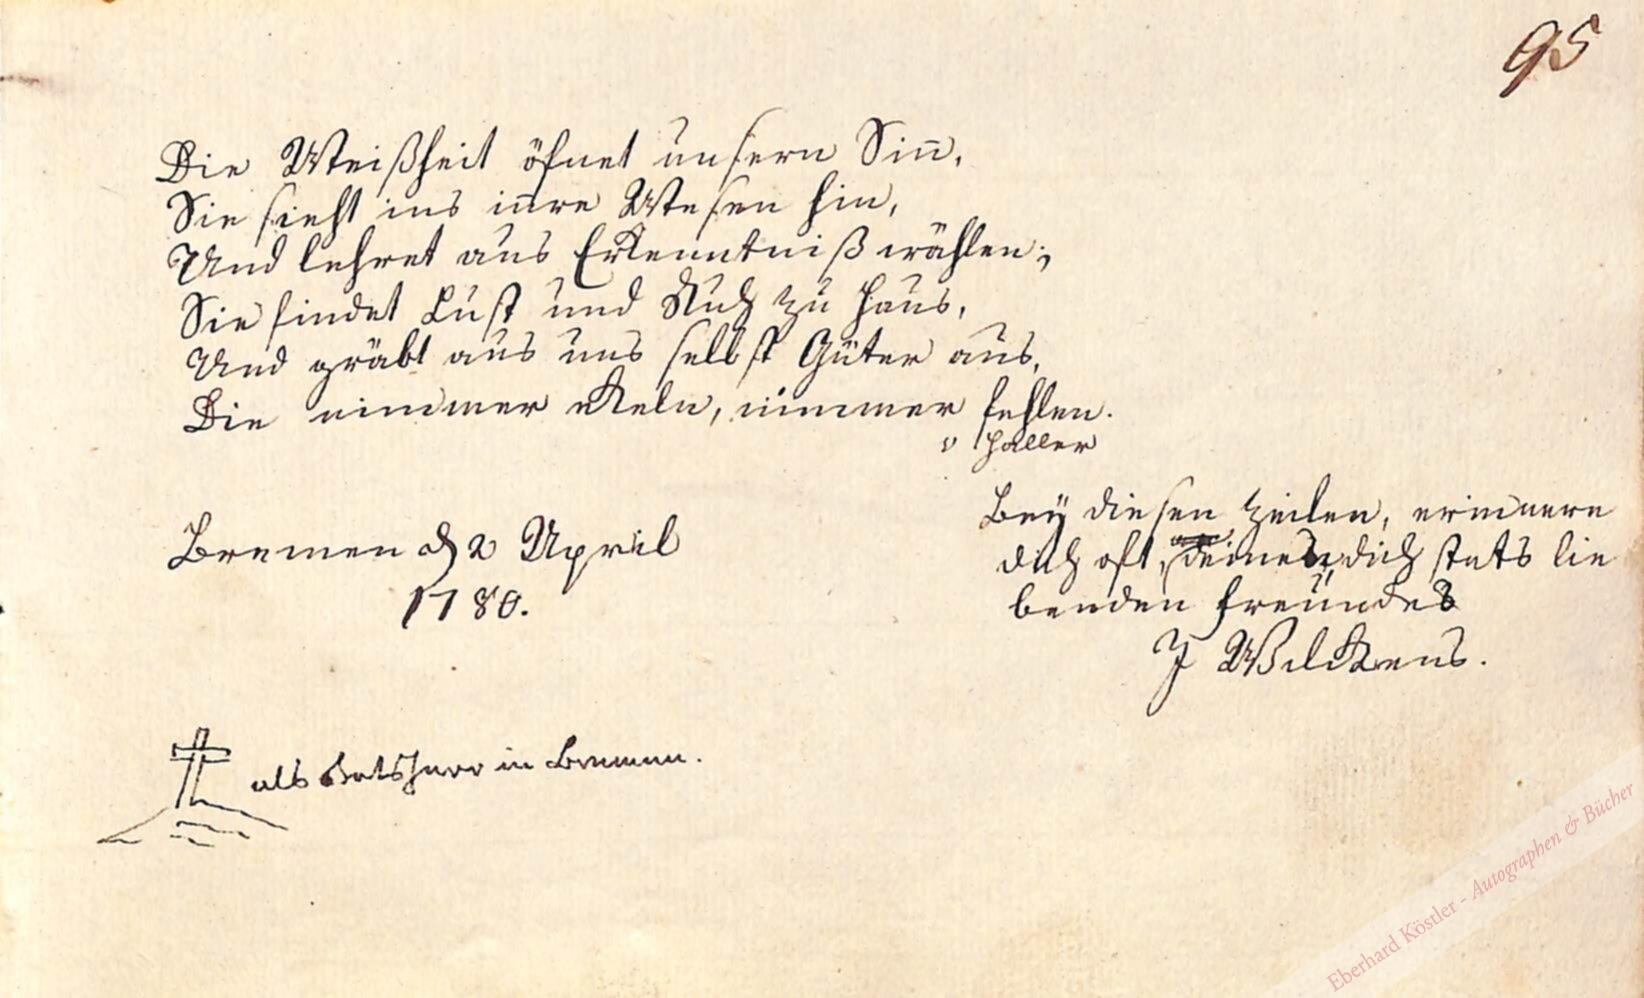 95
Die Weißheit öfnet unsern Sin̄,
Sie sieht ins in̄re Wesen hin,
Und lehret aus Erkenntniß wählen;
Sie findet Lust und Ruh zu Haus,
Und gräbt aus uns selbst Güter aus,
Die nimmer ekeln, nimmer fehlen.
v Haller
Bremen d 2 April
1780.
Bey diesen Zeilen, erinnere
dich oft, deines dich stets lie
benden Freundes
J Wilckens.
als Ratsherr in Bremen.
Eberhard Köstler - Autographen & Bücher